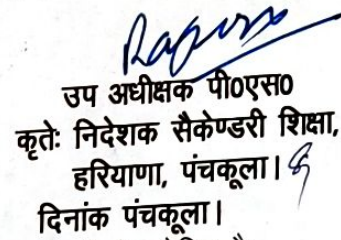 उप अधीक्षक पी0एस0
कृतेः निदेशक सैकेण्डरी शिक्षा,
हरियाणा, पंचकूला।
दिनांक पंचकूला।